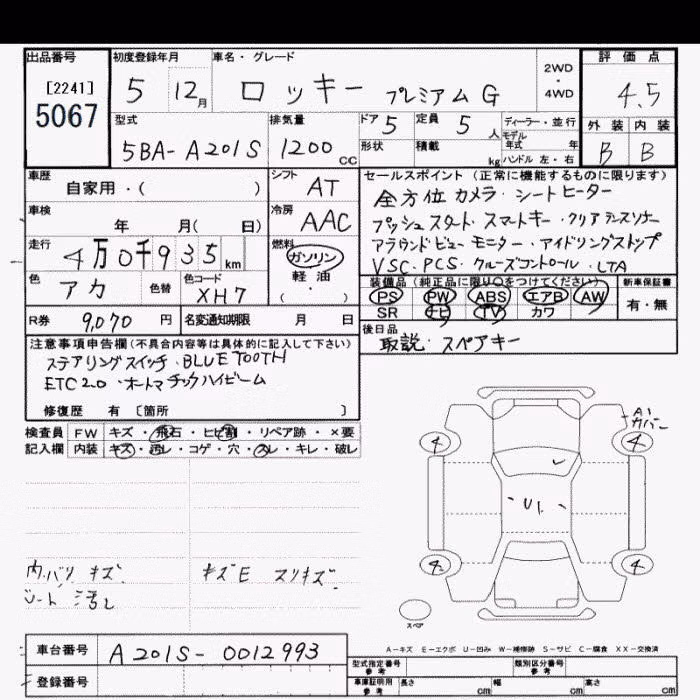 出品番号 初度登録年月 車名・グレード 評価点
[2241] 5067
5 12月 ロッキー プレミアムG 2WD・4WD 4.5
型式 排気量 ドア 5 定員 5 人 ディーラー・並行 外装 内装
5BA-A201S 1200 CC 形状 積載 kg モデル年式 年 ハンドル 左・右 B B
車歴 シフト セールスポイント(正常に機能するものに限ります)
自家用・( ) AT 全方位カメラ・シートヒーター
車検 冷房 プッシュスタート・スマートキー・クリアランスソナー
年 月( 日) AAC アラウンドビューモニター・アイドリングストップ
走行 燃料 VSC・PCS・クルーズコントロール・LTA
4万0千935km ガソリン・軽油・( )
色 色替 色コード 装備品(純正品に限り○をつけてください) 新車保証書
アカ XH7 PS PW ABS エアB AW 有・無
SR ナビ TV カワ
R券 9,070円 名変通知期限 月 日 後日品
取説・スペアキー
注意事項申告欄(不具合内容等は具体的に記入して下さい)
ステアリングスイッチ・BLUETOOTH
ETC2.0・オートマチックハイビーム
修復歴 有 [箇所 ]
検査員 FW キズ・飛石・ヒビ割・リペア跡・×要
記入欄 内装 キズ・汚レ・コゲ・穴・スレ・キレ・破レ
A1
カバー
4 4
U1
4 4
内バリ キズ キズE スリキズ
シート 汚レ
スペア
A-キズ E-エクボ U-凹み W-補修跡 S-サビ C-腐食 XX-交換済
車台番号 A201S-0012993
登録番号
型式指定番号 参考 類別区分番号 参考
車庫証明用 参考 長さ cm 幅 cm 高さ cm